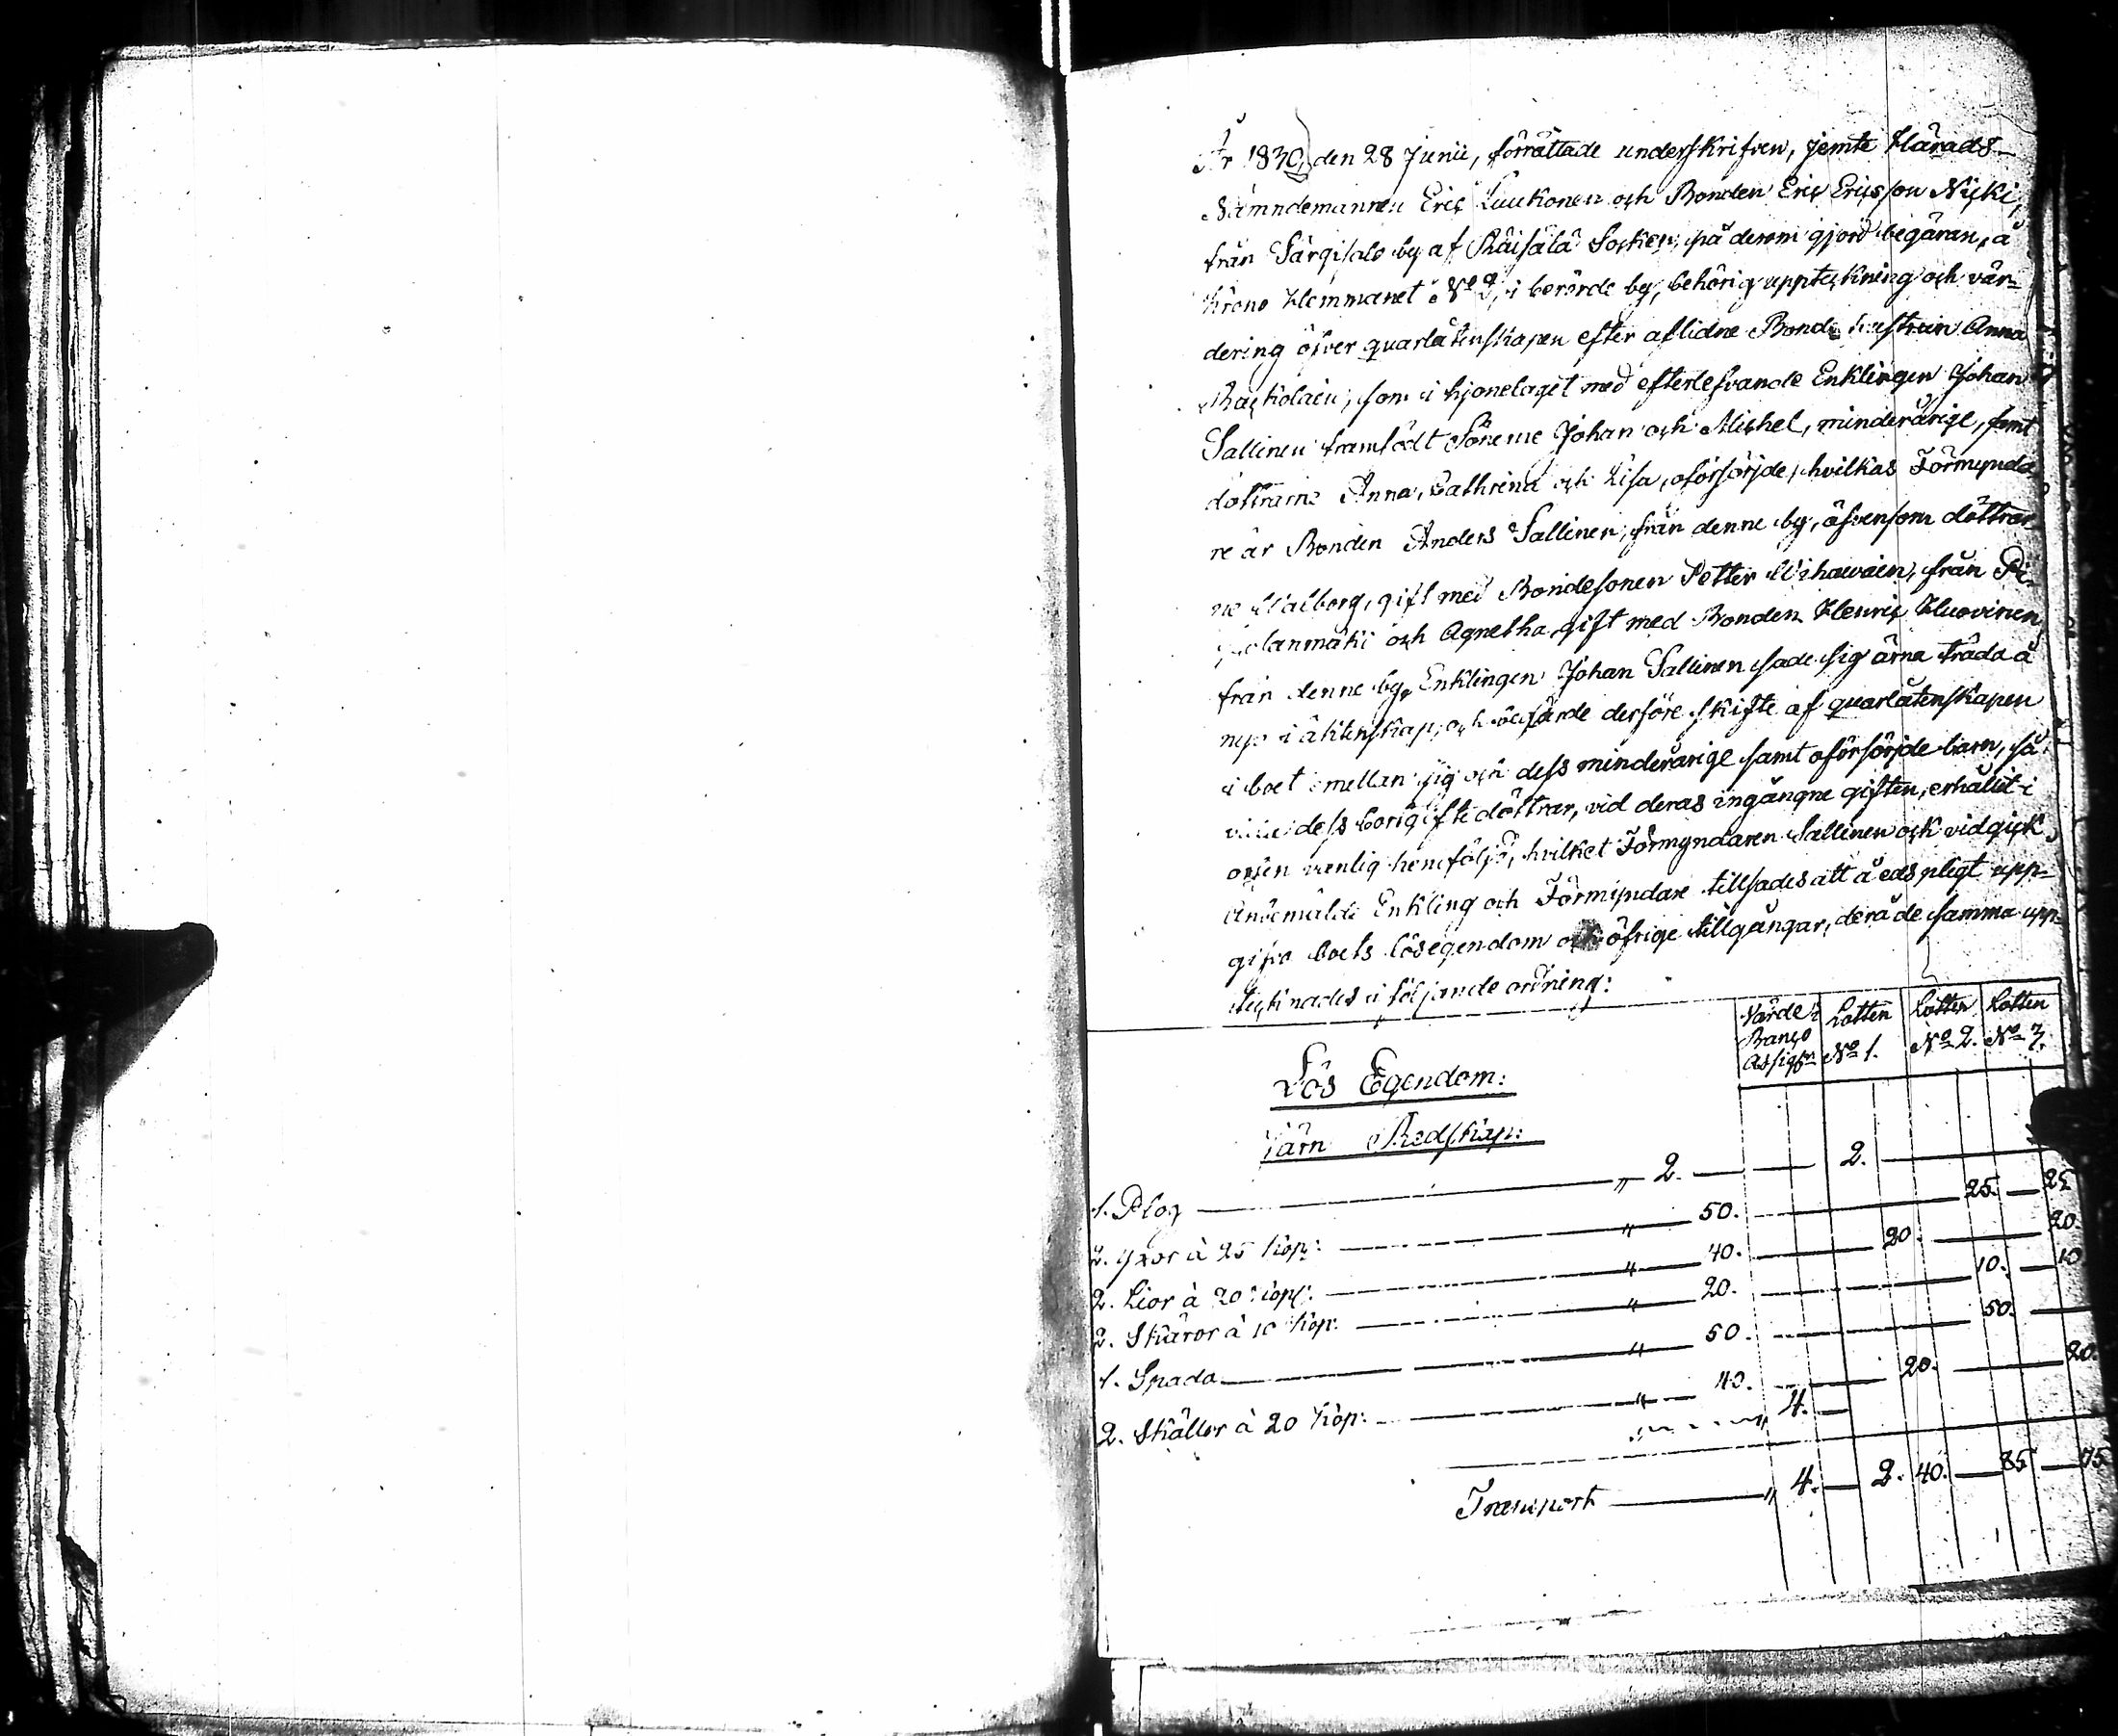 År 1830, den 28 Junii, förrättade underskrifven, jemte Härads-
Nämndemannen Eric Luukonen och Bonden Eric Ericsson Nycki,
från Särgisalo by af Räisälä Socken, på derom gjord begäran, å
Krono Hemmanet No 2, i berörde by, behörig uppteckning och vär-
dering öfver quarlåtenskapen efter aflidne Bonde hustrun Anna
som i hjonelaget med efterlefvande Enklingen Johan
Sallinen framfödt Sönerne Johan och Michel, minderårige, samt
döttrarne Anna, Cathrina och Lisa, oförsörjde, hvilkas Förmynda
re är Bonden Anders Sallinen, från denne by, äfvensom döttrar-
ne Walborg, gift med Bondesonen Petter Wihavain, från Pi-
och Agnetha gift med Bonden Henric Huovinen
från denne by. Enklingen Johan Sallinen sade sig ärna träda å
nyo i äktenskap, och begärde derföre skifte af quarlåtenskapen
i boet emellan sig och dess minderårige samt oförsörjde barn, så
dess bortgifte döttrar, vid deras ingångne giften, erhållit i
orten vanlig hemfölje, hvilket Förmyndaren Sallinen ock vidgick.
Enkling och Förmyndare tillsades att å eds pligt upp-
gifva boets lösegendom och öfrige tillgångar, derå de samma upp-
tecknades i följande ordning:
Värde i Banco Assigtn Lotten No 1. Lotten No 2. Lotten No 3.
Lös Egendom:
Järn Redskap:
1. Plog " 2. 2.
2. Yxor à 25 kop: " 50. 25. 25
2. Lior à 20 kop: " 40. 20. 20.
2. Skäror à 10 kop: " 20. 10. 10
1. Spada " 50. 50.
2. Skällor à 20 kop: " 40. 4. 20. 20.
Transport " 4. 2. 40. 85 75